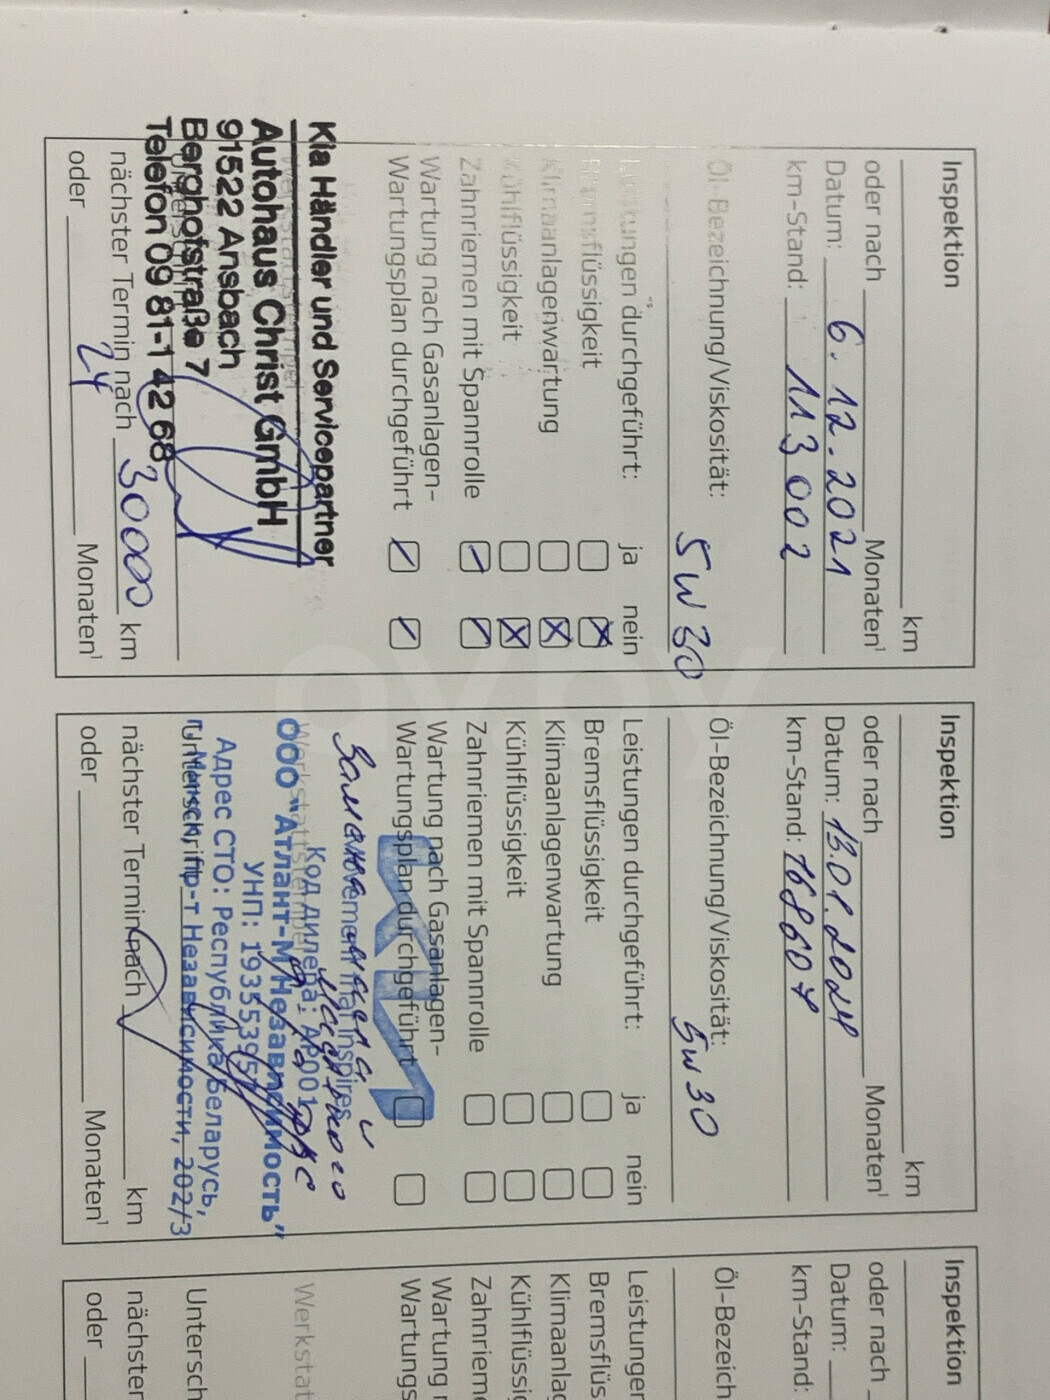 Inspektion
km
oder nach Monaten¹
Datum: 6.12.2021
km-Stand: 113002
Öl-Bezeichnung/Viskosität:
5W30
Leistungen durchgeführt: ja nein
Bremsflüssigkeit
Klimaanlagenwartung
Kühlflüssigkeit
Zahnriemen mit Spannrolle
Wartung nach Gasanlagen-
Wartungsplan durchgeführt
Kia Händler und Servicepartner
Autohaus Christ GmbH
91522 Ansbach
Berghofstraße 7
Telefon 09 81-1 42 68
nächster Termin nach 30000 km
oder 24 Monaten¹
Inspektion
km
oder nach Monaten¹
Datum: 13.01.2024
km-Stand: 168607
Öl-Bezeichnung/Viskosität:
5w30
Leistungen durchgeführt: ja nein
Bremsflüssigkeit
Klimaanlagenwartung
Kühlflüssigkeit
Zahnriemen mit Spannrolle
Wartung nach Gasanlagen-
Wartungsplan durchgeführt
Movement that inspires
Замена масла и
масляного
Код дилера: AP001
Werkstattstempel
ООО "Атлант-М Независимость"
УНП: 19355395
Адрес СТО: Республика Беларусь,
Unterschrift
г. Минск, пр-т Независимости, 202/3
nächster Termin nach km
oder Monaten¹
Inspektion
oder nach
Datum:
km-Stand:
Öl-Bezeich
Leistungen
Bremsflüs
Klimaanlag
Kühlflüssig
Zahnrieme
Wartung n
Wartungs
Werkstat
Untersch
nächster
oder
av.by